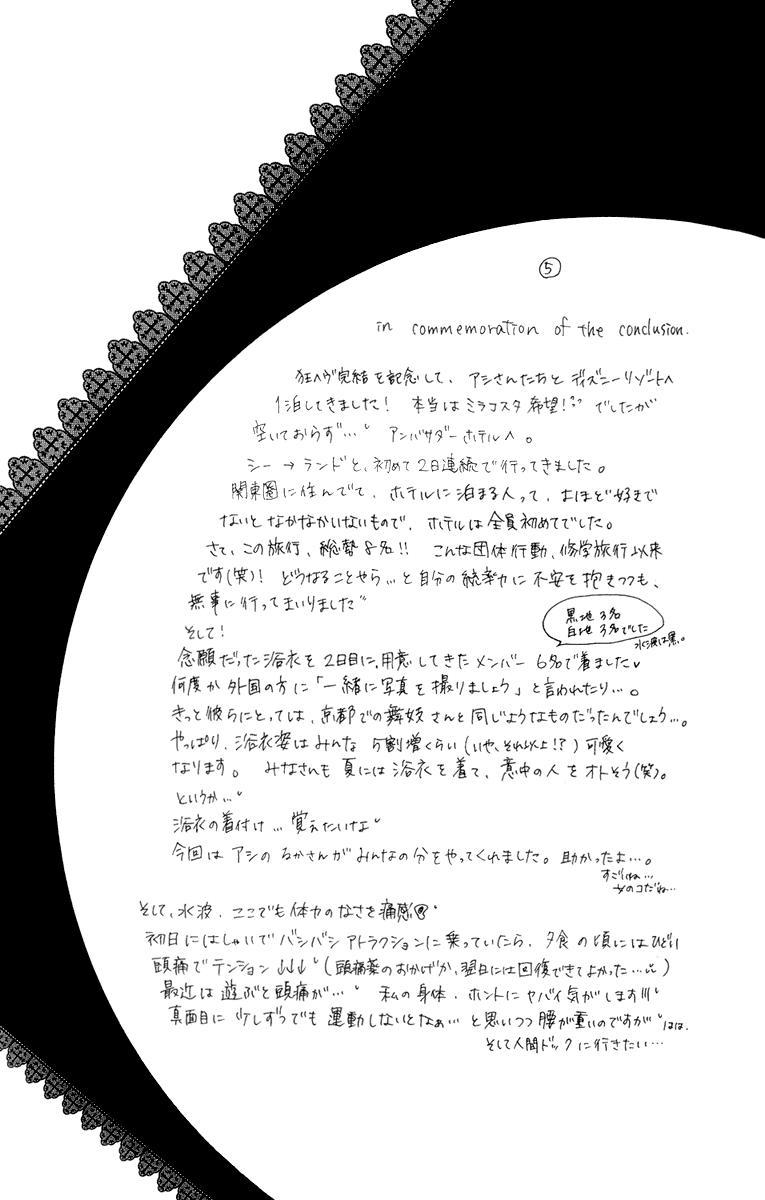 ⑤
in commemoration of the conclusion.
狂ヘヴ完結を記念して、アシさんたちとディズニーリゾートへ
1泊してきました! 本当はミラコスタ希望! でしたが
空いておらず… アンバサダーホテルへ。
シー→ランドと、初めて2日連続で行ってきました。
関東圏に住んでて、ホテルに泊まる人って、よほど好きで
ないとなかなかいないもので、ホテルは全員初めてでした。
さて、この旅行、総勢8名!! こんな団体行動、修学旅行以来
です(笑)! どうなることやら…と自分の統率力に不安を抱きつつも、
無事に行ってまいりました
黒地3名
白地3名でした
水波は黒。
そして!
念願だった浴衣を2日目に、用意してきたメンバー6名で着ました
何度か外国の方に「一緒に写真を撮りましょう」と言われたり…。
きっと彼らにとっては、京都での舞妓さんと同じようなものだったんでしょう…。
やっぱり、浴衣姿はみんな5割増くらい(いや、それ以上!?)可愛く
なります。 みなさんも夏には浴衣を着て、意中の人をオトそう(笑)。
というか…
浴衣の着付け…覚えたいナよ
今回はアシのるかさんがみんなの分をやってくれました。助かったよ…。
すごいね…
女のコだね…
そして、水波、ここでも体力のなさを痛感
初日にはしゃいでバシバシアトラクションに乗っていたら、夕食の頃にはひどい
頭痛でテンション↓↓↓(頭痛薬のおかげか、翌日には回復できてよかった…)
最近は遊ぶと頭痛が… 私の身体、ホントにヤバイ気がします
真面目に少しずつでも運動しないとなぁ…と思いつつ腰が重いのですが はは.
そして人間ドックに行きたい…